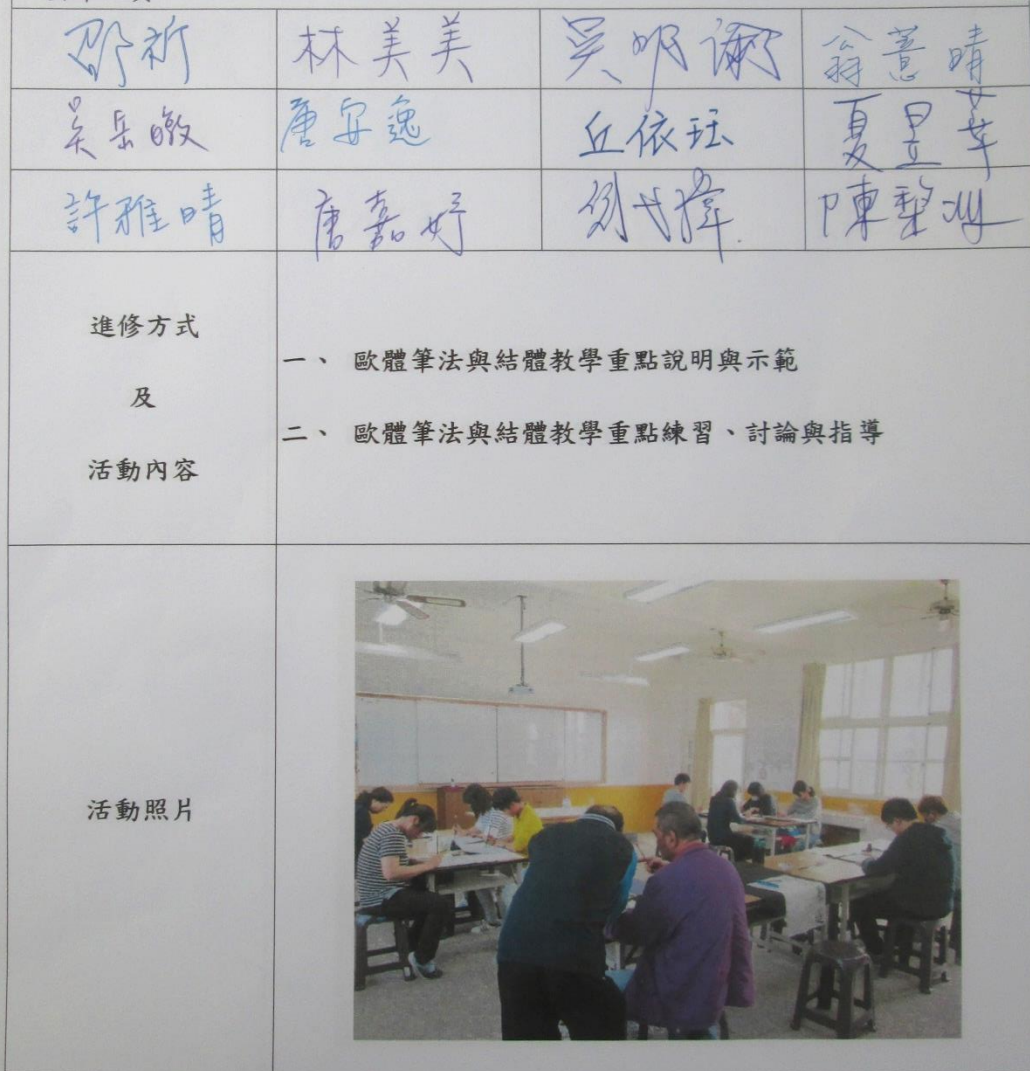 邵祈 林美美 吳明 翁薏晴
吳岳暾 唐安逸 丘依珏 夏昱苹
許雅晴 唐嘉妤 陳
進修方式
及
活動內容
一、 歐體筆法與結體教學重點說明與示範
二、 歐體筆法與結體教學重點練習、討論與指導
活動照片